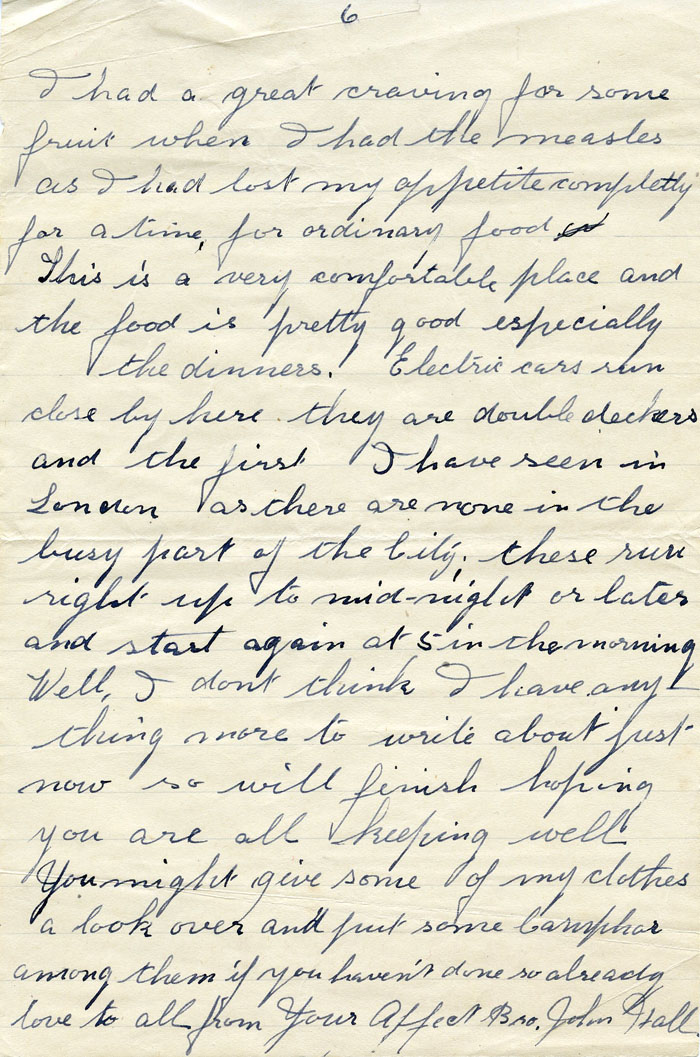 6
I had a great craving for some
fruit when I had the measles
as I had lost my appetite completly
for a time, for ordinary food
This is a very comfortable place and
the food is pretty good especially
the dinners. Electric cars run
close by here they are double deckers
and the first I have seen in
London as there are none in the
busy part of the City, these run
right up to mid-night or later
and start again at 5 in the morning
Well, I dont think I have any
thing more to write about just
now so will finish hoping
you are all keeping well
You might give some of my clothes
a look over and put some Camphor
among them if you haven't done so already
love to all from Your Affect Bro. John Hall.